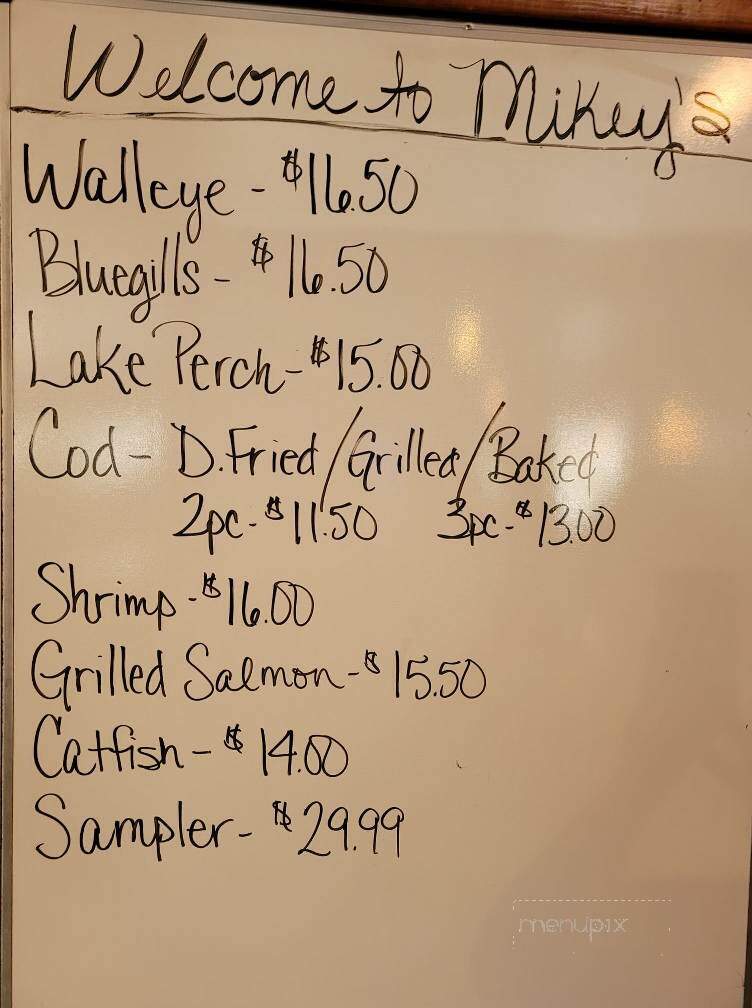 Welcome to Mikey's
Walleye - $16.50
Bluegills - $16.50
Lake Perch - $15.00
Cod - D.Fried/Grilled/Baked
2pc - $11.50 3pc - $13.00
Shrimp - $16.00
Grilled Salmon - $15.50
Catfish - $14.00
Sampler - $29.99
menupix